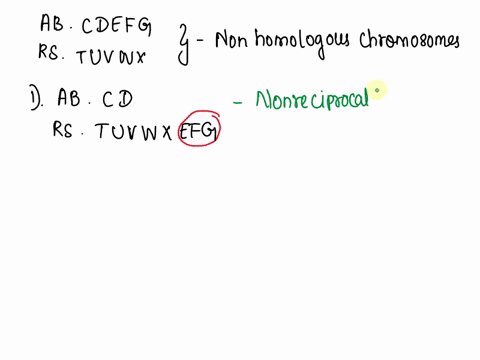 AB. CDEFG
RS. TUVWX } - Non homologous chromosomes
1). AB. CD - Nonreciprocal
RS. TUVWX EFG